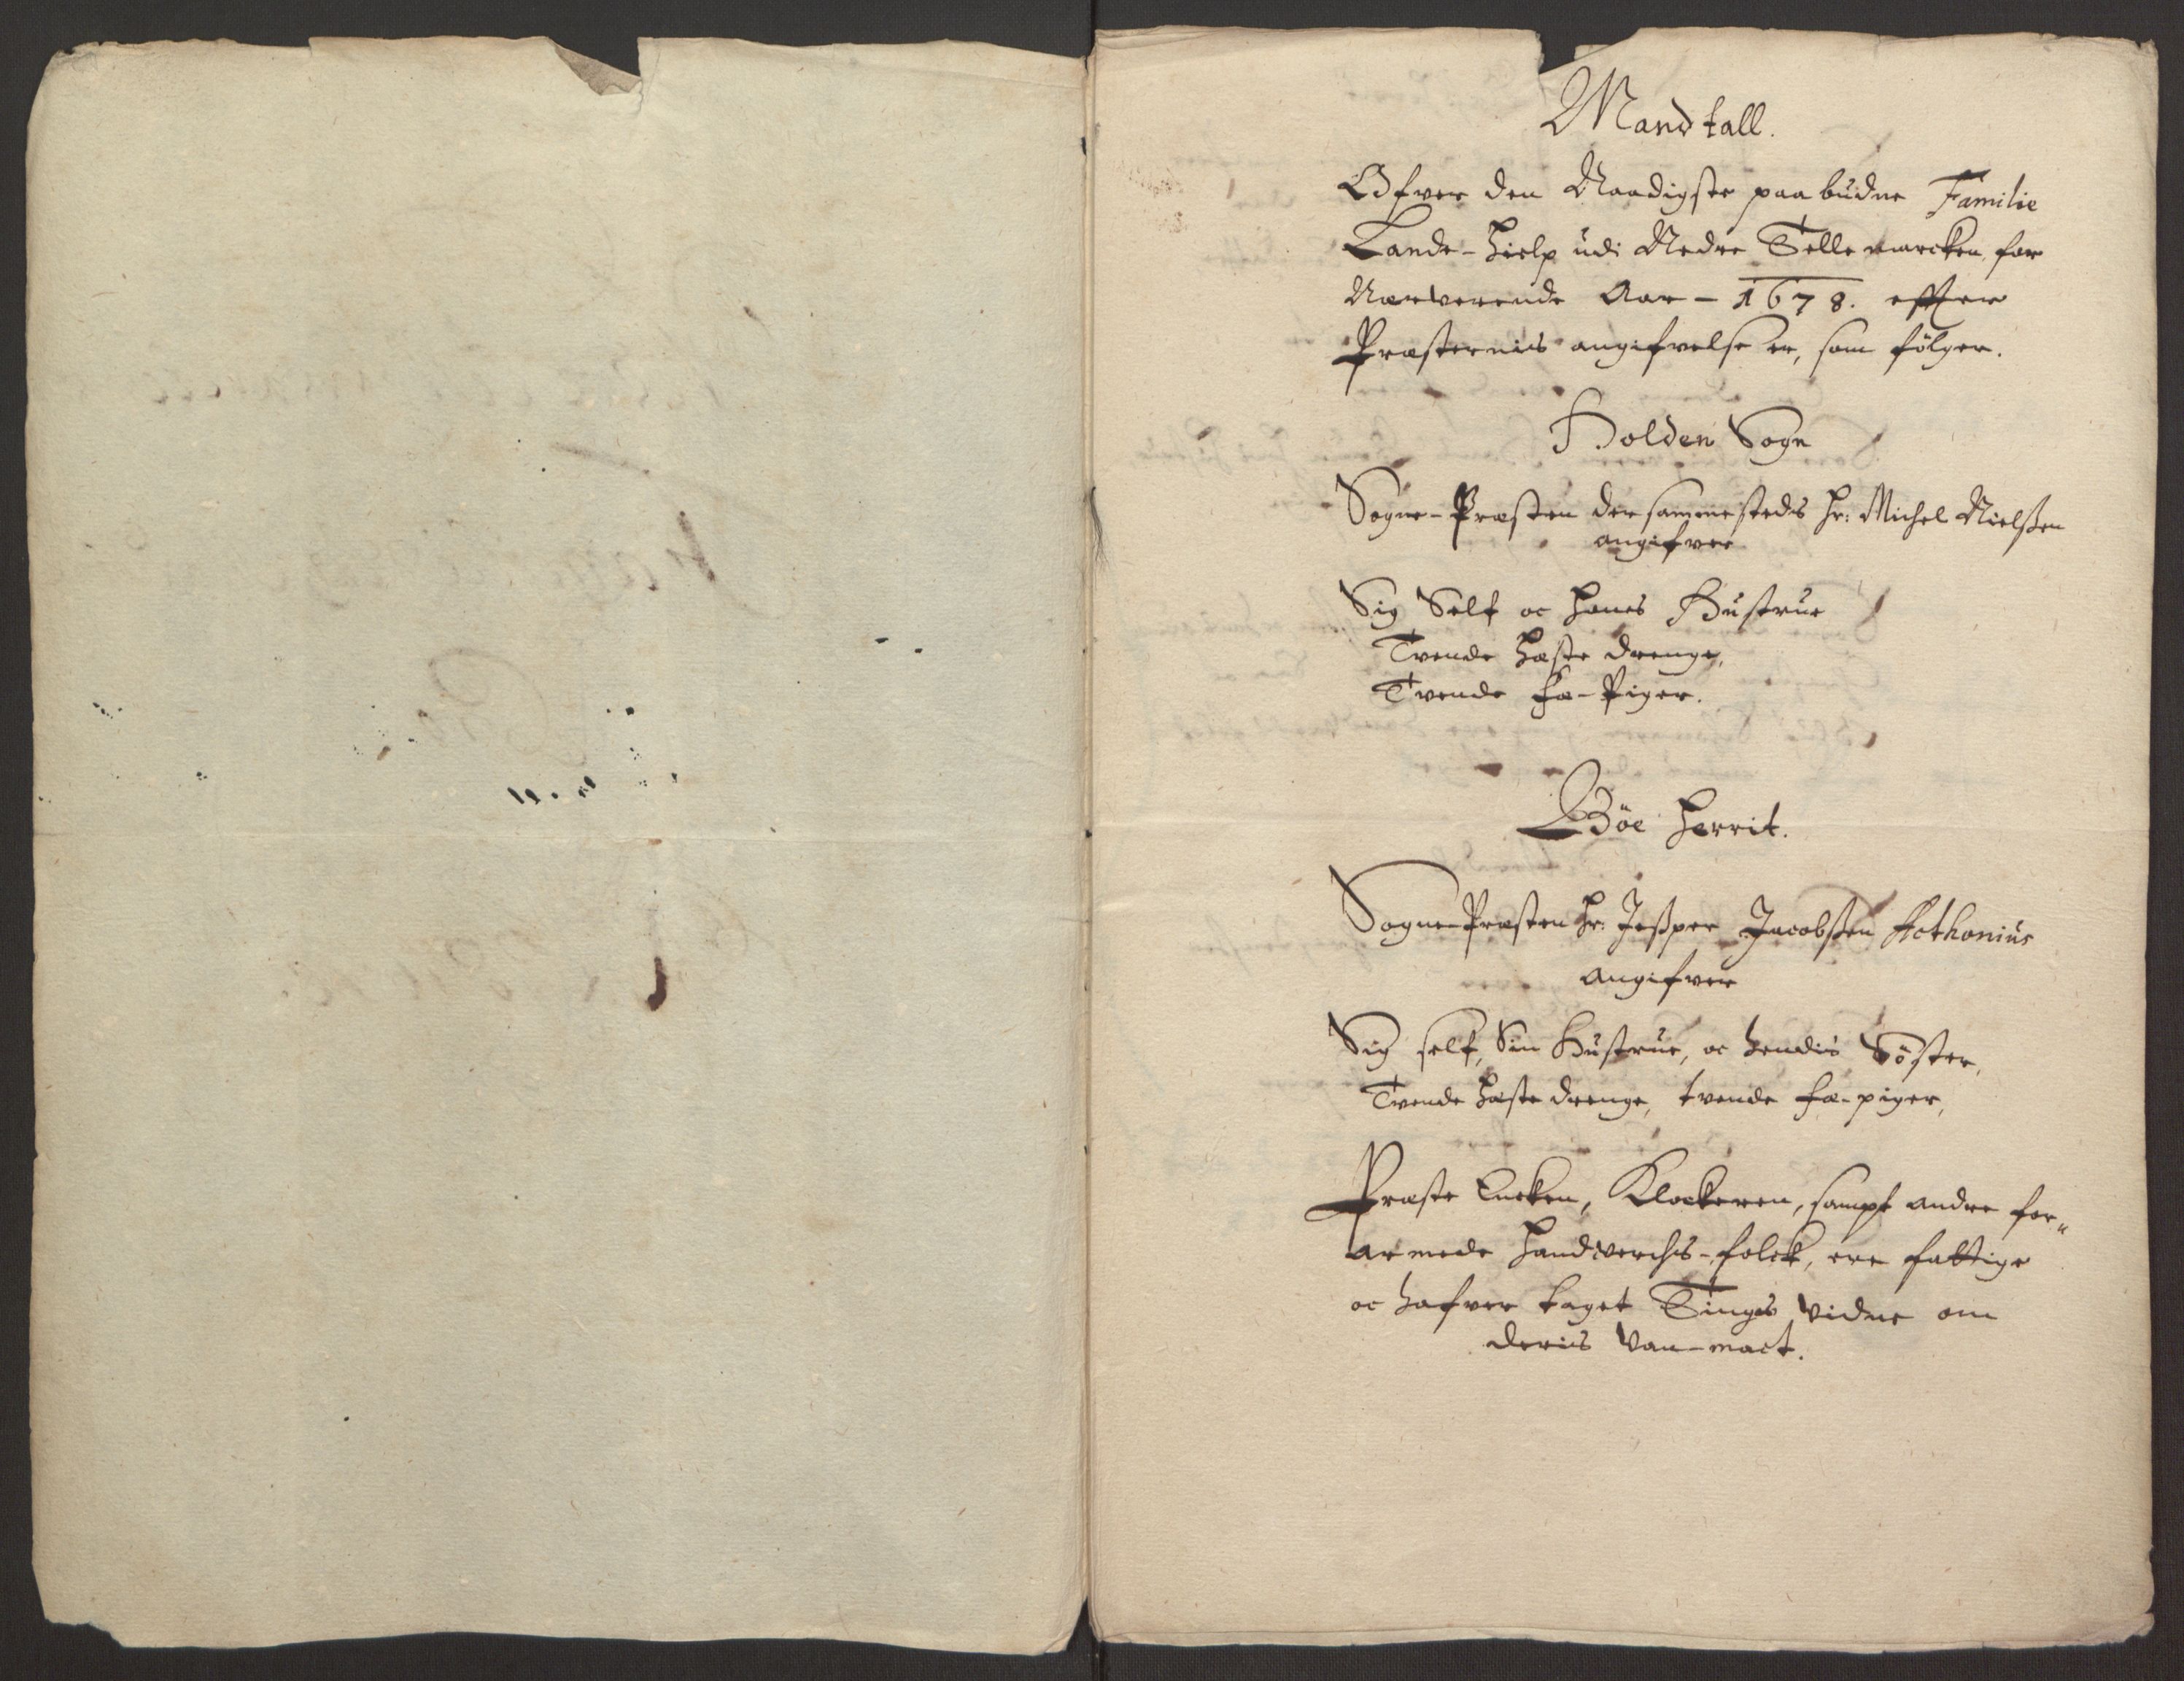 Mandtall.
Ofver den Naadigste paabudne Familie
Lande-hielp udi Nedre Tellemarcken, for
Nærverende Aar - 1678. effter
Præsternis angifvelse er, som følger.
Holden Sogn
Sogne-Præsten dersammesteds Hr: Michel Nielßen
angifver
Sig Self oc hans Hustrue
Tvende Hæste drenge,
Tvende Fæ-Piger.
Böe Herrit.
Sogne-Præsten Hr: Jeßper Jacobßen
angifver
Sig self, Sin Hustrue, oc hendis Söster,
Tvende Hæste drenge, tvende fæ-piger,
Præste Encken, Klockeren, sampt andre for„
armede Handverchs-folck, ere fattige
oc hafver taget Tings vidne om
deris Van-mact.